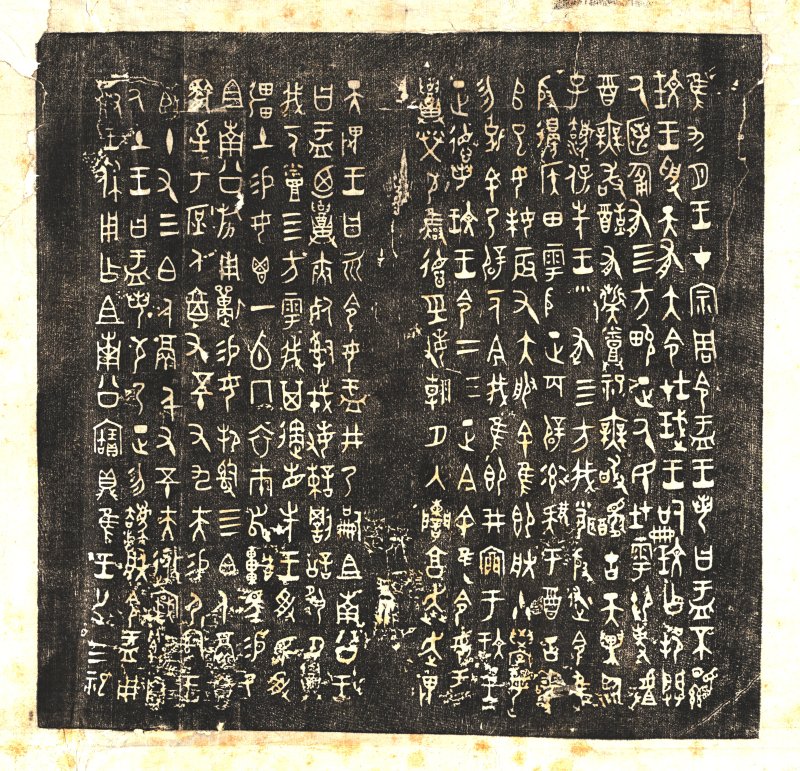 隹九月王才宗周令盂王若曰盂不顯
玟王受天有大令在珷王嗣玟乍邦闢
氒匿匍有四方㽙正氒民在雩御事𠭯
酉無敢酖有髭烝祀無敢醻古天異臨
子灋保先王有四方我聞殷述令隹
殷邊侯田雩殷正百辟率肄于酉古喪
𠂤已女妹辰又大服余隹即朕小學女
勿余乃辟一人今我隹即井于玟王
正德若玟王令二三正今余隹令女盂
榮敬雝德巠敏朝夕入讕亯奔走畏
天畏王曰令女盂井乃嗣且南公王
曰盂廼夾死𤔲戎敏諫罰訟夙夕
我一人烝四方雩我其遹省先王受民受
彊土易女鬯一卣冂衣巿舄車馬易乃
且南公旂用易女邦𤔲四白人鬲自
馭至于庶人六百又五十又九夫易尸𤔲
王臣十又三白人鬲千又五十夫
自氒土王曰盂若敬乃正勿灋朕令盂用
對王休用乍且南公寶鼎隹王廿又三祀